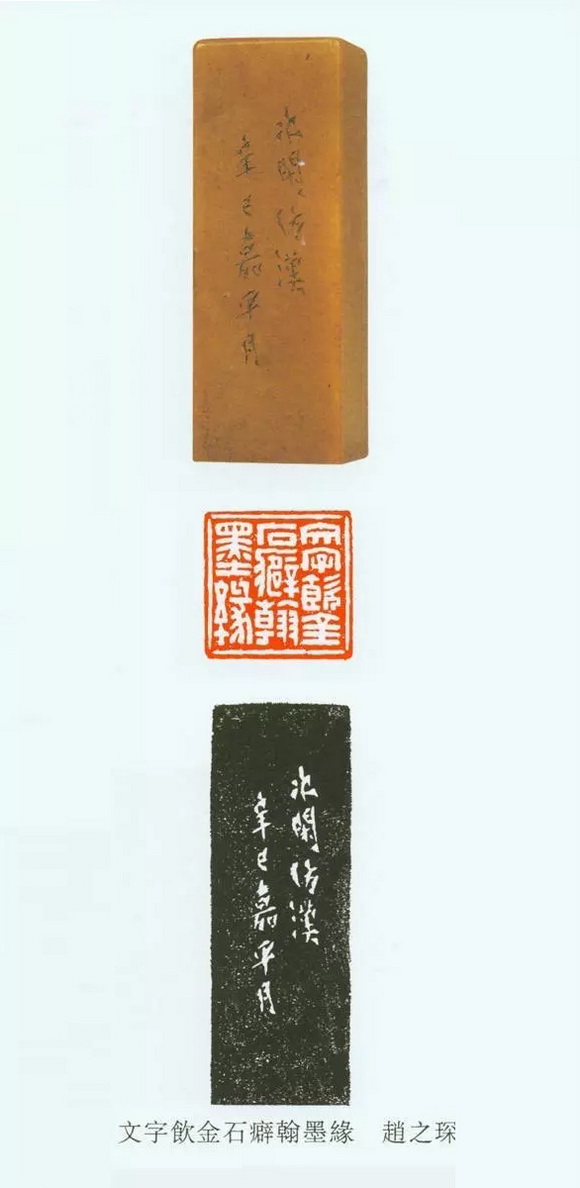 次閑仿漢
辛巳嘉平月
文字飲金
石癖翰
墨緣
次閑仿漢
辛巳嘉平月
文字飲金石癖翰墨緣　趙之琛